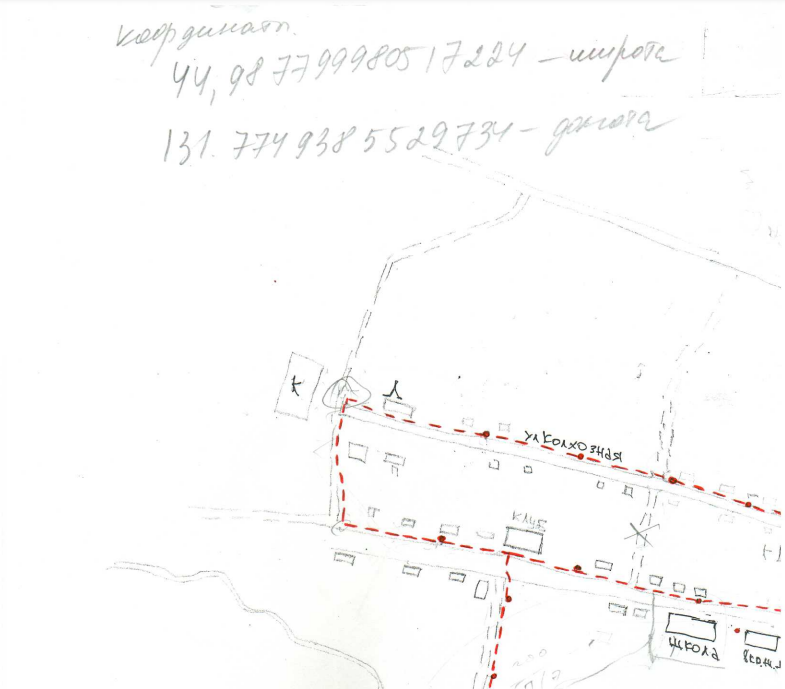 координаты.
44,987799980517224 – широта
131.7749385529734 – долгота
К
Л
ул Колхозная
клуб
школа